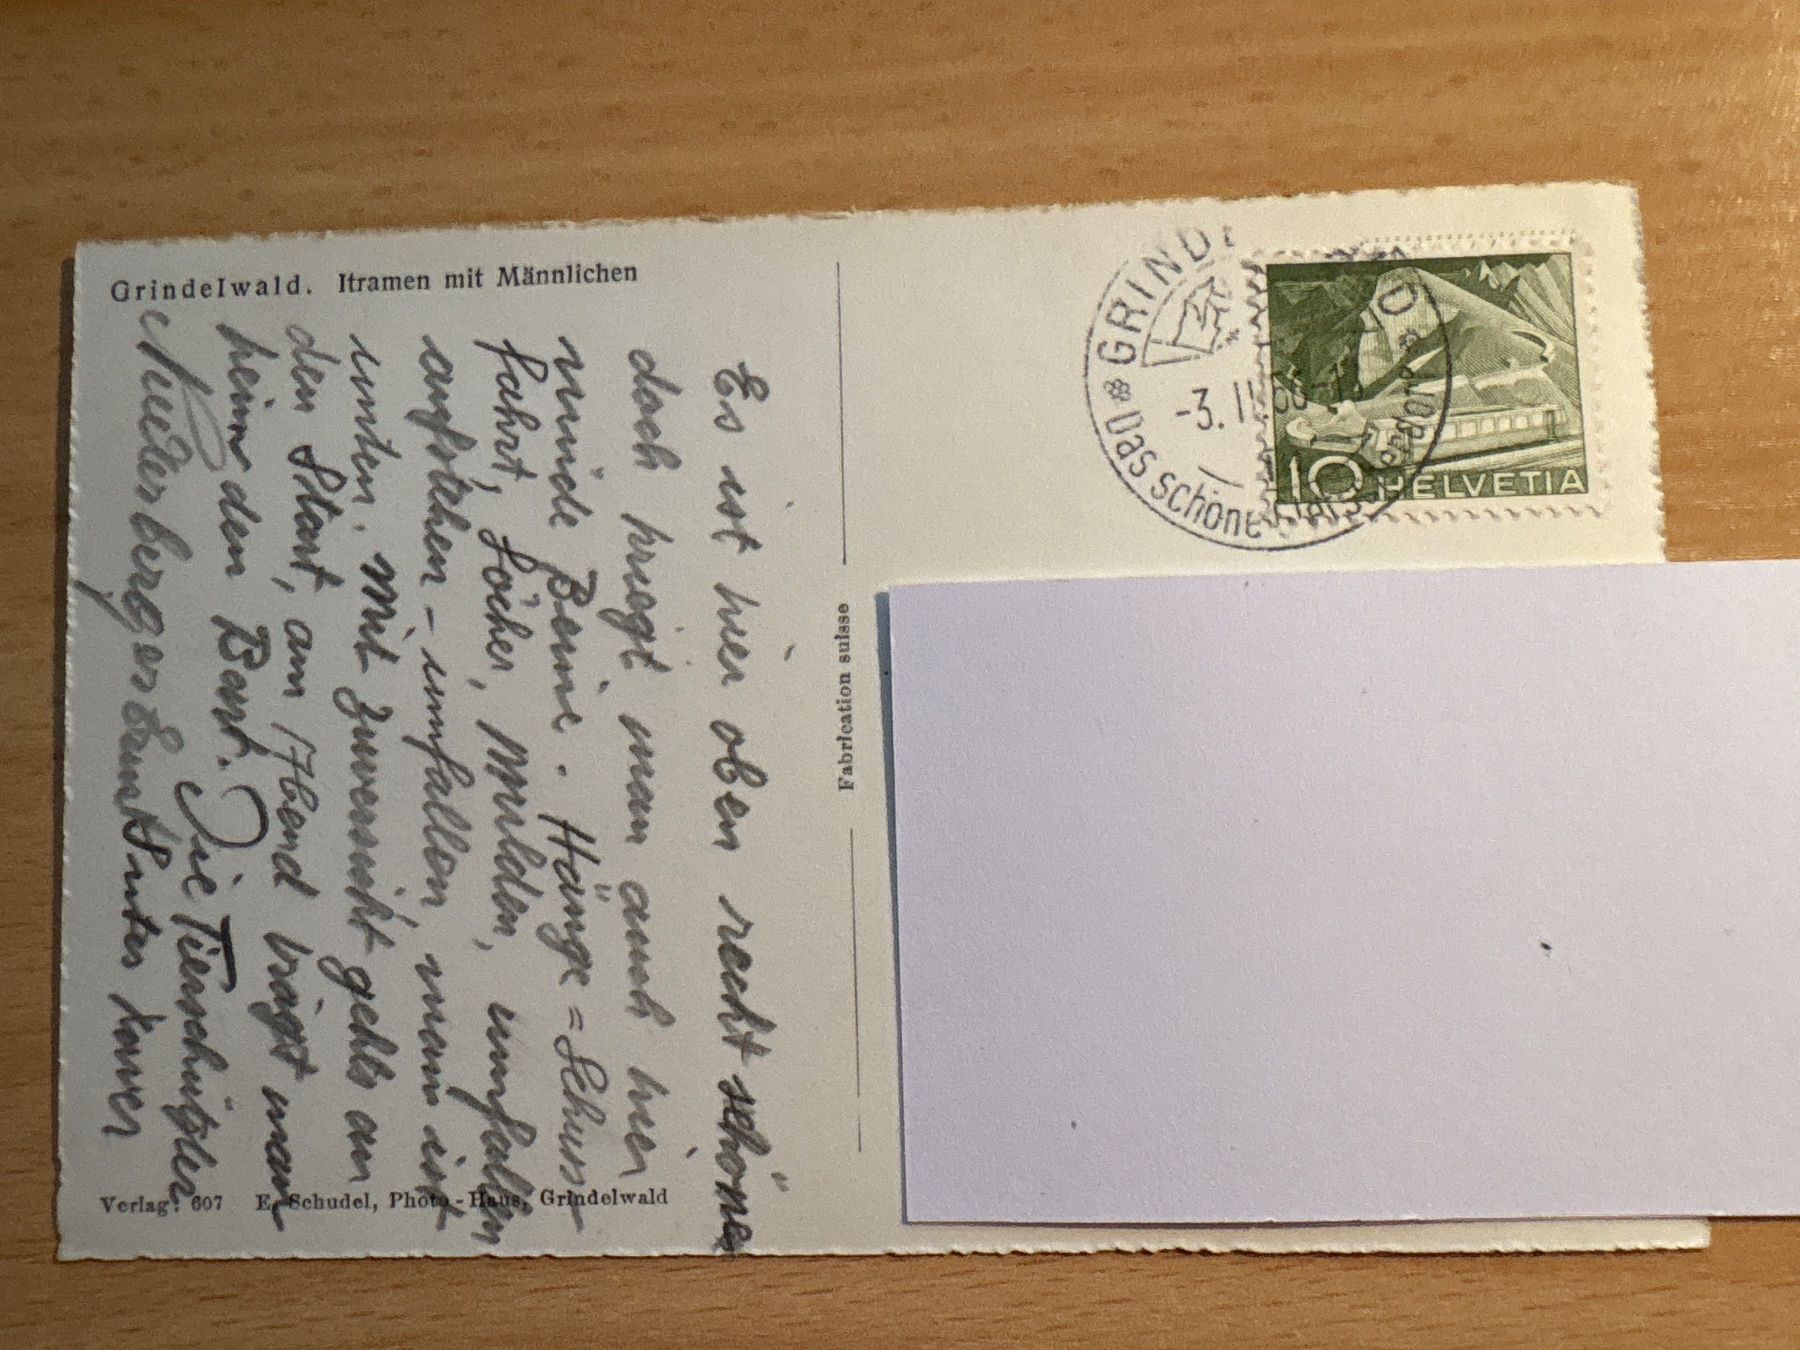 Grindelwald. Itramen mit Männlichen
Es ist hier oben recht schön,
doch kriegt man auch hier
müde Beine. Hänge = Schuss
fahrt, Löcher, Mulden, umfallen
aufstehen - umfallen, man ist
unten. Mit Zuversicht gehts an
den Start, am Abend trägt man
heim den Bart. Die Tierschützler
Fabrication suisse
Verlag: 607 E. Schudel, Photo-Haus, Grindelwald
GRINDELWALD
-3.II.
Das schöne Gletscherdorf
10 HELVETIA